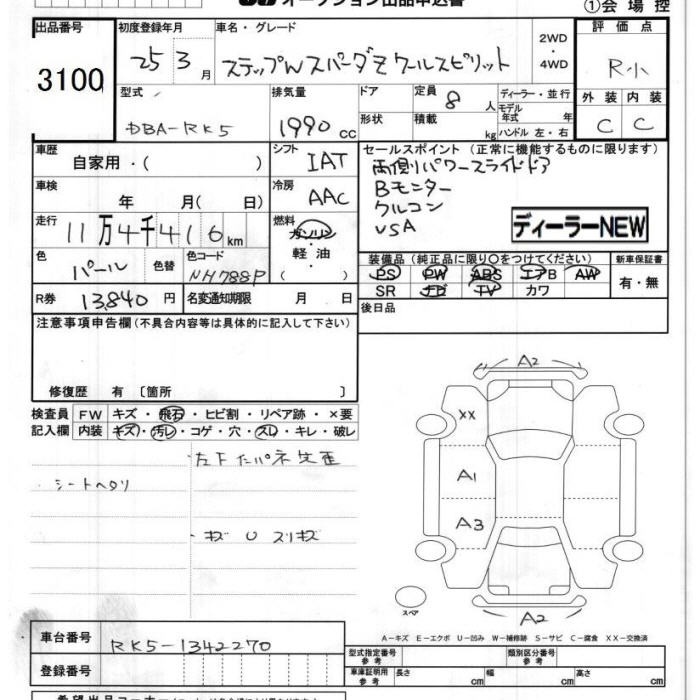 オークション出品申込書 ①会場控
出品番号 初度登録年月 車名・グレード 2WD・4WD 評価点
3100 25 3月 ステップWスパーダZクールスピリット R小
型式 排気量 ドア 定員 8人 ディーラー・並行 外装 内装
DBA-RK5 1990cc 形状 積載 kg モデル年式 年 ハンドル 左・右 C C
車歴 自家用・( ) シフト IAT セールスポイント (正常に機能するものに限ります)
両側パワースライドドア
車検 年 月( 日) 冷房 AAC Bモニター
クルコン
走行 11万4千416km 燃料 ガソリン VSA ディーラーNEW
軽油
( )
色 パール 色替 色コード NH788P 装備品 (純正品に限り○をつけてください) 新車保証書
PS PW ABS エアB AW 有・無
SR ナビ TV カワ
R券 13,840円 名変通知期限 月 日 後日品
注意事項申告欄(不具合内容等は具体的に記入して下さい)
修復歴 有 〔箇所 〕
検査員 FW キズ・飛石・ヒビ割・リペア跡・×要
記入欄 内装 キズ・汚レ・コゲ・穴・スレ・キレ・破レ
シートヘタリ
キズ U スリキズ
A2
XX
A1
A3
スペア
A2
A-キズ E-エクボ U-凹み W-補修跡 S-サビ C-腐食 XX-交換済
車台番号 RK5-1342270 型式指定番号 参考 類別区分番号 参考
登録番号 車庫証明用 参考 長さ cm 幅 cm 高さ cm